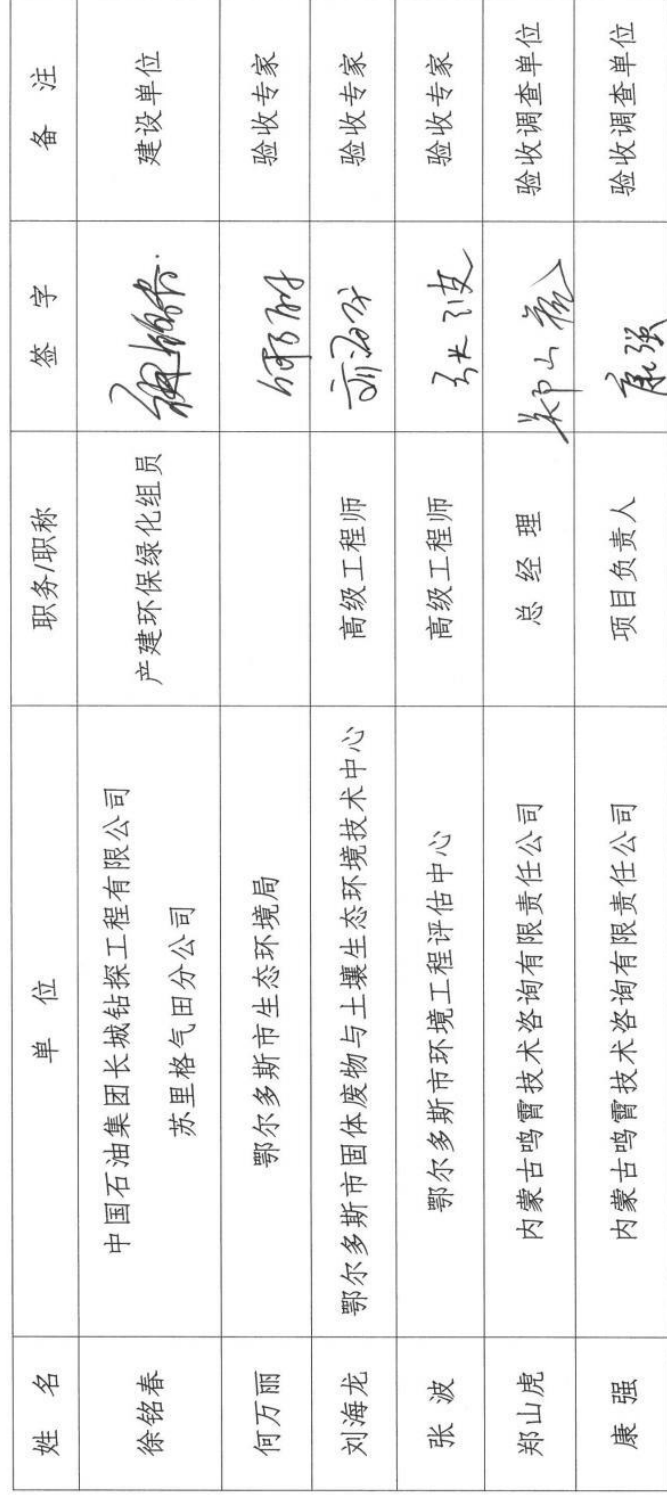 姓 名 单 位 职务/职称 签 字 备 注
徐铭春 中国石油集团长城钻探工程有限公司 产建环保绿化组员 徐铭春 建设单位
苏里格气田分公司
何万丽 鄂尔多斯市生态环境局 验收专家
刘海龙 鄂尔多斯市固体废物与土壤生态环境技术中心 高级工程师 刘海龙 验收专家
张 波 鄂尔多斯市环境工程评估中心 高级工程师 张波 验收专家
郑山虎 内蒙古鸣霄技术咨询有限责任公司 总 经 理 郑山虎 验收调查单位
康 强 内蒙古鸣霄技术咨询有限责任公司 项目负责人 康强 验收调查单位